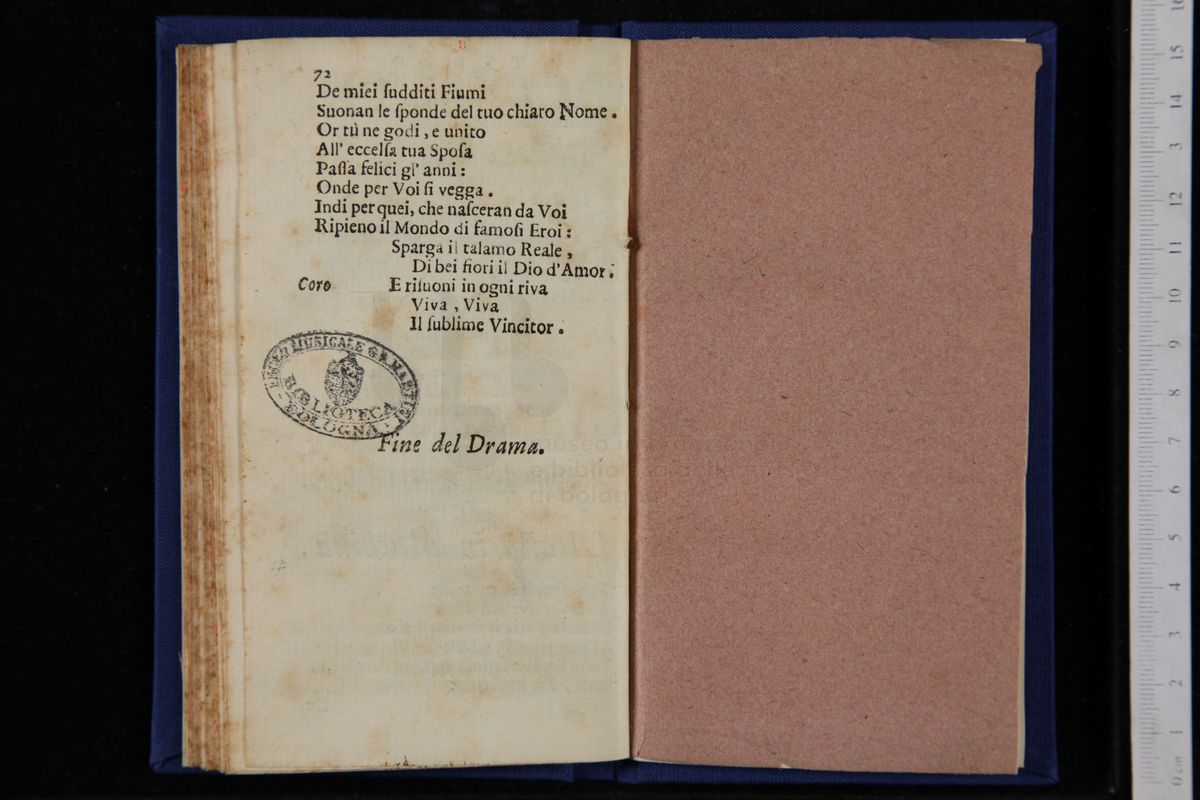 72
De miei ſudditi Fiumi
Suonan le ſponde del tuo chiaro Nome.
Or tù ne godi, e unito
All' eccelſa tua Spoſa
Paſſa felici gl' anni:
Onde per Voi ſi vegga.
Indi per quei, che naſceran da Voi
Ripieno il Mondo di famoſi Eroi:
Sparga il talamo Reale,
Di bei fiori il Dio d'Amor.
Coro E riſuoni in ogni riva
Viva, Viva
Il ſublime Vincitor.
MUSICALE G.B. MARTINI
BIBLIOTECA
BOLOGNA
Fine del Drama.
museo
e biblio
di bologna
16
15
14
13
12
11
10
9
8
7
6
5
4
3
2
1
0 cm